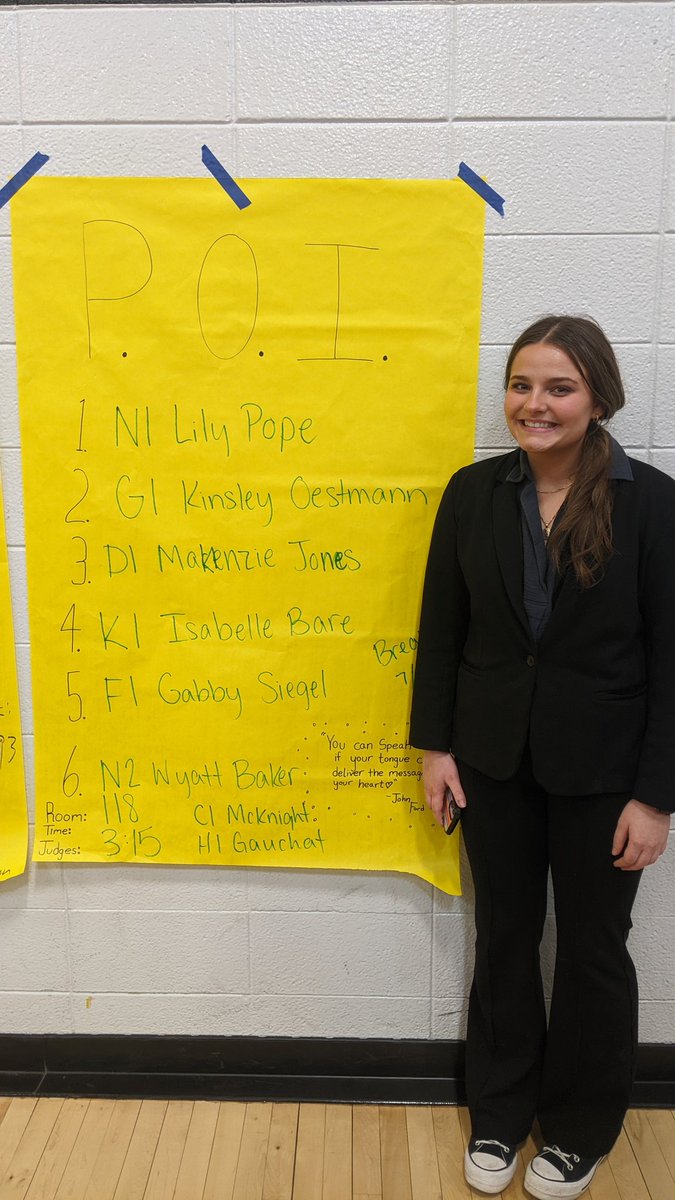 P.O.I.
1. N1 Lily Pope
2. G1 Kinsley Oestmann
3. D1 Makenzie Jones
4. K1 Isabelle Bare
5. F1 Gabby Siegel
6. N2 Wyatt Baker
Room: 118
Time: 3:15
Judges: C1 McKnight
H1 Gauchat
"You can Speak
if your tongue
deliver the message
your heart♡"
-John
Ford
93